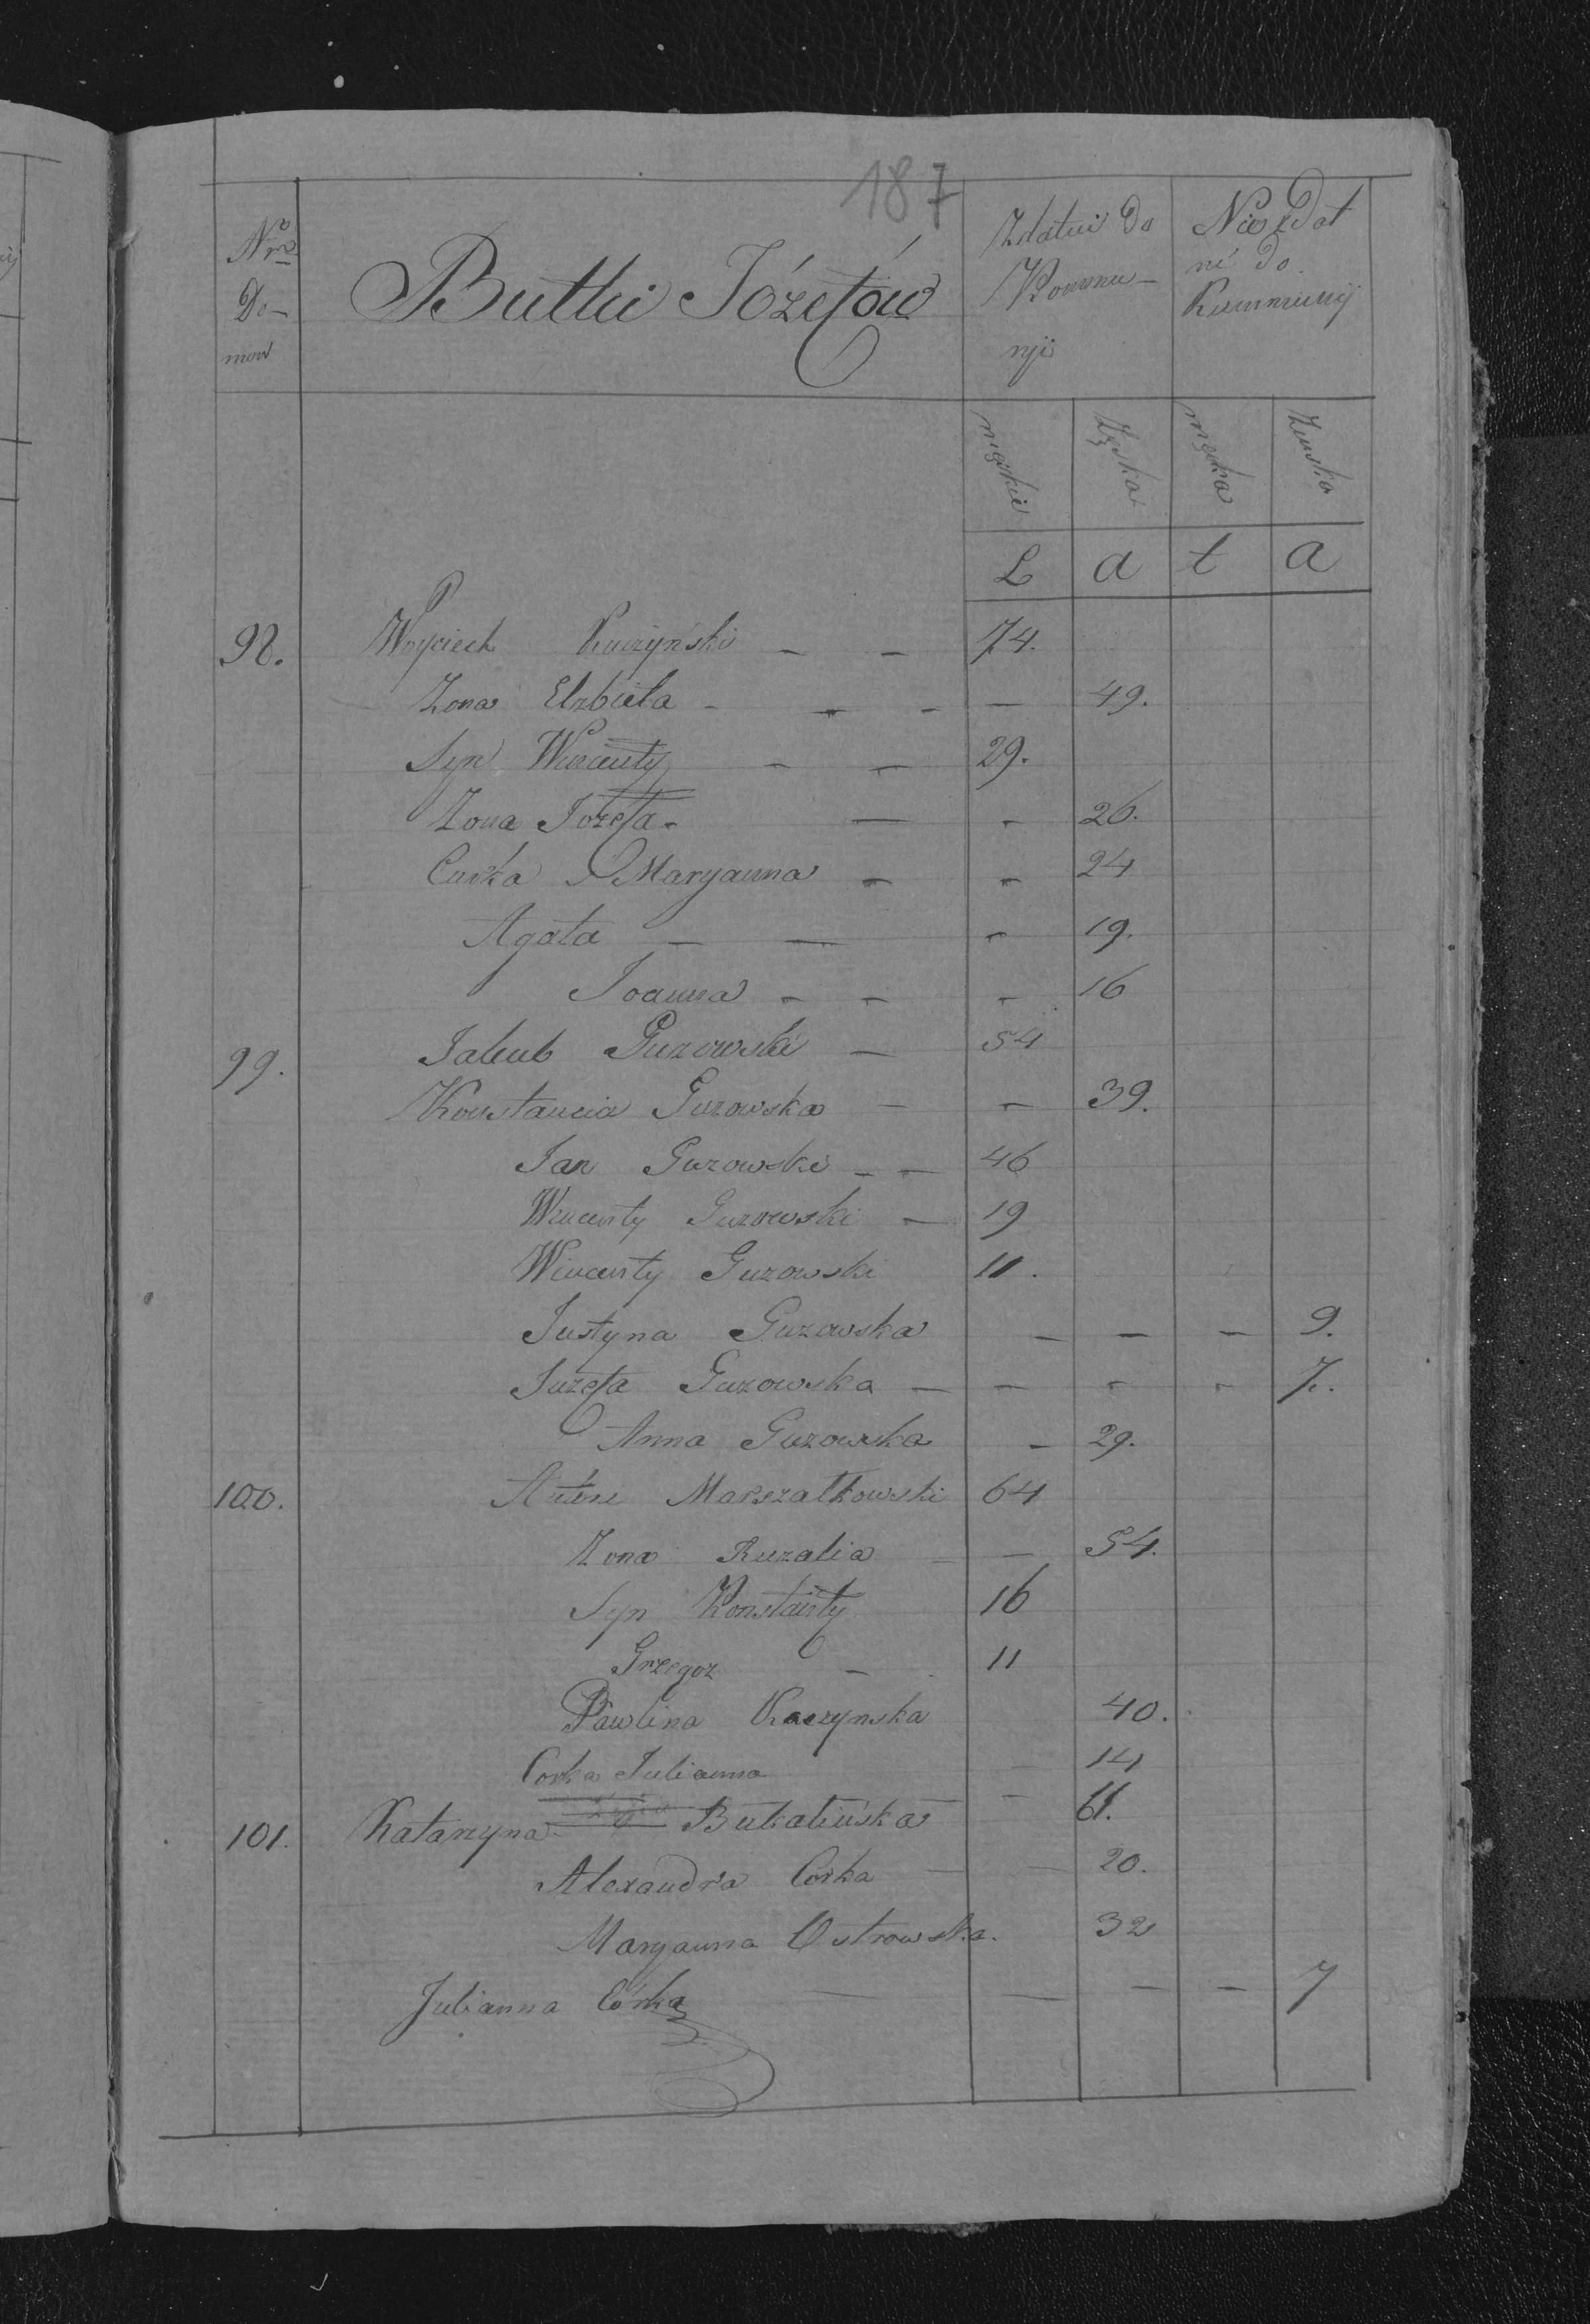 187
Nro Do- mow
Butki Józefów
Zdatni do Kommu- nji
Nie zdat ni do Kummunij
męskie Zęska męska Zenska
L a t a
98. Woyciech Kuczyński - - 74.
Zona Elzbieta - - - - 49.
Syn Wincenty - - 29.
Zona Józefa - - - 26.
Curka Maryanna - - 24
Agata - - - 19.
Joanna - - - 16
99. Jakub Guzowski - 54
Konstancia Guzowska - - 39.
Jan Guzowski - - 46
Wincenty Guzowski - 19
Wincenty Guzowski 11.
Justyna Guzowska - - - 9.
Juzefa Guzowska - - - - 7.
Anna Guzowska - 29.
100. Marszałkowski 64
Zona Ruzalia - - 54.
Syn Konstanty 16
Grzegoz - 11
Pawlina Kaczynska 40.
Corka Julianna - 14
101. Katarzyna Bukatińska - 61.
Alexandra Corka - - 20.
Maryanna Ostrowska. 32
Julianna Córka - - - - 7